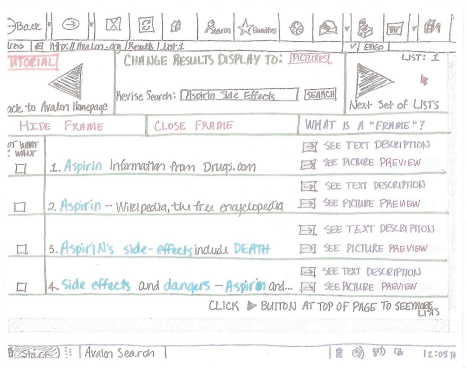 Back
Search Favorites
ress http://Avalon.org/Results/List1
TUTORIAL
CHANGE RESULTS DISPLAY TO: PICTURES
LIST: 1
Revise Search: Aspirin Side Effects SEARCH
ack to Avalon Homepage
Next Set of LISTS
HIDE FRAME CLOSE FRAME WHAT IS A "FRAME"?
OT WANT
WANT
1. Aspirin Information from Drugs.com
SEE TEXT DESCRIPTION
SEE PICTURE PREVIEW
2. Aspirin - Wikipedia, the free encyclopedia
SEE TEXT DESCRIPTION
SEE PICTURE PREVIEW
3. AspiriN's side-effects include DEATH
SEE TEXT DESCRIPTION
SEE PICTURE PREVIEW
4. Side effects and dangers - Aspirin and...
SEE TEXT DESCRIPTION
SEE PICTURE PREVIEW
CLICK ▶ BUTTON AT TOP OF PAGE TO SEE MORE
LISTS
Start Avalon Search
12:05